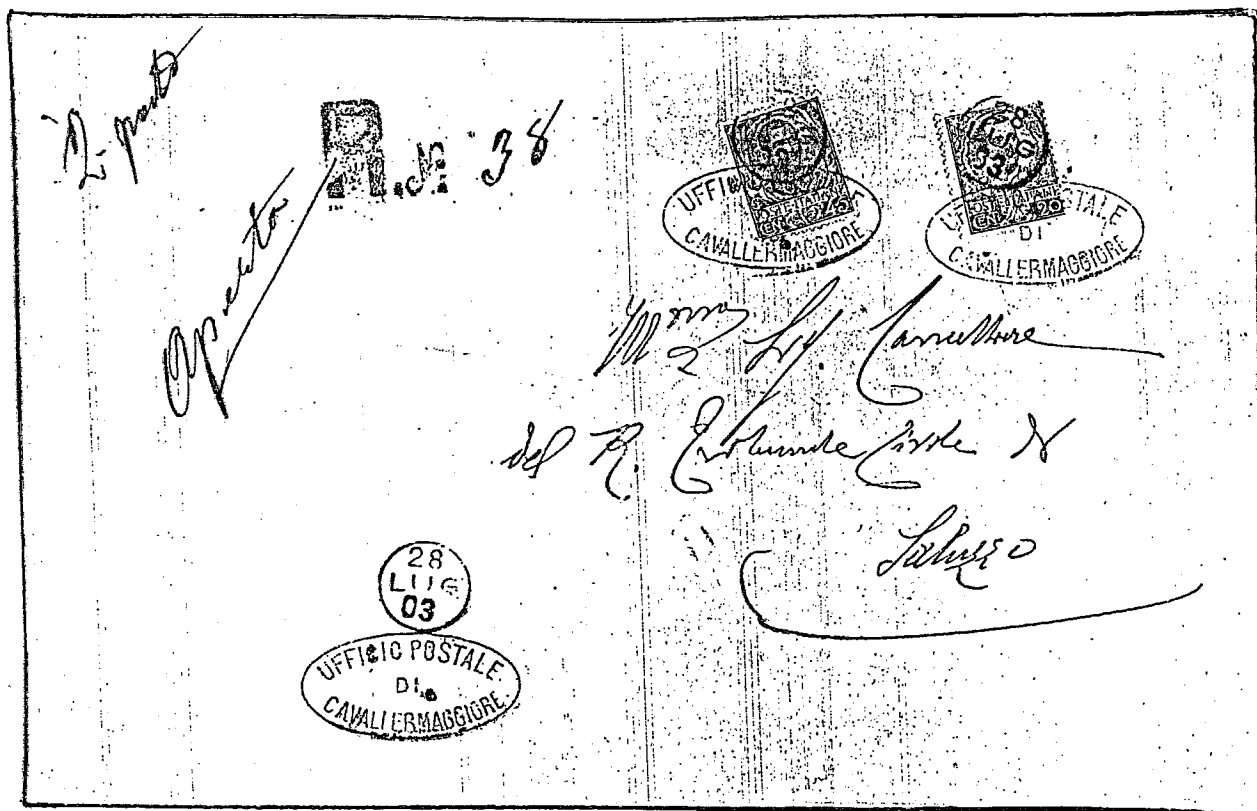 2 porti
Aperto
R. N. 38
UFFICIO POSTALE
CAVALLERMAGGIORE
POSTE ITALIANE
UFFICIO POSTALE
DI
CAVALLERMAGGIORE
Sig Cancelliere
del R. Tribunale Civile di
Saluzzo
28
LUG
03
UFFICIO POSTALE
DI
CAVALLERMAGGIORE